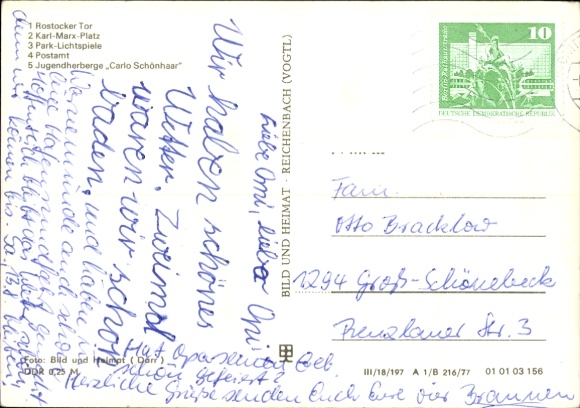 1 Rostocker Tor
2 Karl-Marx-Platz
3 Park-Lichtspiele
4 Postamt
5 Jugendherberge „Carlo Schönhaar"
Liebe Omi, lieber Opi!
Wir haben schönes
Wetter. Zweimal
waren wir schon
baden, und haben in
Warnemünde auch schon
eine Hafenrundfahrt gemacht.
Hoffentlich bleibt das Wetter
denn wir können bis Sa.
Hat Opa seinen Geb.
schön gefeiert?
Herzliche Grüße senden Euch Eure vier
Foto: Bild und Heimat (Dörr)
DDR 0,25 M
BILD UND HEIMAT · REICHENBACH (VOGTL)
10
Berlin · Rathausstraße
DEUTSCHE DEMOKRATISCHE REPUBLIK
Fam.
Otto Bracklow
1294 Groß-Schönebeck
Prenzlauer Str. 3
III/18/197 A 1/B 216/77 01 01 03 156